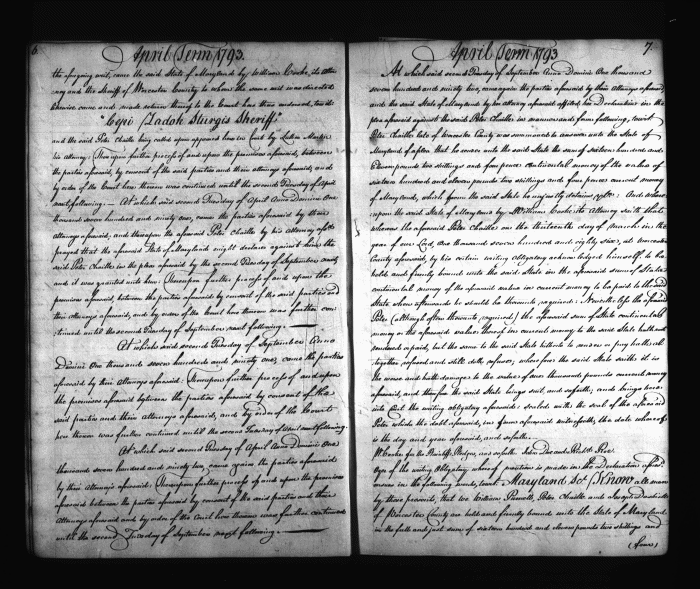 6.
April Term 1793.
the aforegoing writ, came the said State of Maryland by William Cooke, its attor
ney and the Sheriff of Worcester County to whom the same writ was directed
likewise came and made return thereof to the Court here thus endorsed, towit
"Cepi Zadok Sturgis Sheriff"
and the said Peter Chaille being called upon appeared here in Court by Luther Martin
his attorney: Thereupon further process of and upon the premises aforesaid, between
the parties aforesaid, by consent of the said parties and their attornies aforesaid, and
by order of the Court here thereon was continued until the second Tuesday of April
next following. — At which said second Tuesday of April Anno Domini One
thousand seven hundred and ninety one, came the parties aforesaid by their
attornies aforesaid, and thereupon the aforesaid Peter Chaille by his Attorney afsd.
prayed that the aforesaid State of Maryland might declare against him the
said Peter Chaille in the plea aforesaid by the second Tuesday of September next
and it was granted unto him: Thereupon further process of and upon the
premises aforesaid, between the parties aforesaid by consent of the said parties and
their attornies aforesaid, and by order of the Court here thereon was further con-
tinued until the second Tuesday of September next following. —
At which said second Tuesday of September Anno
Domini One thousand seven hundred and ninety one, came the parties
aforesaid by their attornies aforesaid: Thereupon further process of and upon
the premises aforesaid between the parties aforesaid by consent of the
said parties and their attornies aforesaid, and by order of the Court
here thereon was further continued until the second Tuesday of April next following. —
At which said second Tuesday of April Anno Domini One
thousand seven hundred and ninety two, came again the parties aforesaid
by their attornies aforesaid: Thereupon further process of and upon the premises
aforesaid between the parties aforesaid by consent of the said parties and their
attornies aforesaid, and by order of the Court here thereon was further continued
until the second Tuesday of September next following. —
April Term 1793
7.
At which said second Tuesday of September Anno Domini One thousand
seven hundred and ninety two, came again the parties aforesaid by their attornies aforesaid
and the said State of Maryland by her attorney aforesaid filed her Declaration in the
plea aforesaid against the said Peter Chaille in manner and form following, towit
Peter Chaille late of Worcester County was summoned to answer unto the State of
Maryland of a plea that he render unto the said State the sum of sixteen hundred and
Eleven pounds two shillings and four pence continental money of the value of
sixteen hundred and eleven pounds two shillings and four pence current money
of Maryland, which from the said State he unjustly detains &c: And where
upon the said State of Maryland by William Cooke its Attorney saith that
whereas the aforesaid Peter Chaille on the thirteenth day of March in the
year of our Lord One thousand seven hundred and eighty six, at Worcester
County aforesaid, by his certain writing obligatory acknowledged himself to be
held and firmly bound unto the said State in the aforesaid sum of State
continental money of the aforesaid value in current money to be paid to the said
State when afterwards he should be thereunto required: Nevertheless the said
Peter (although often thereunto required) the aforesaid sum of State continental
money or the aforesaid value thereof in current money to the said State hath not
rendered or paid, but the same to the said State hitherto to render or pay hath al-
together refused and still doth refuse; wherefore the said State saith it is
the worse and hath damage to the value of one thousand pounds current money
aforesaid, and therefore the said State brings suit, and so forth; and brings here
into Court the writing obligatory aforesaid sealed with the seal of the aforesaid
Peter which the debt aforesaid, in form aforesaid witnesseth, the date whereof
is the day and year aforesaid, and so forth.
W. Cooke for the Plaintiff. Pledges and so forth John Doe and Richd. Roe.
Copy of the writing Obligatory whereof profert is made in the Declaration aforesd.
in the following words, towit Maryland Sct. Know all men
by these presents, that we William Purnell, Peter Chaille and Joseph Dashiell
of Worcester County are held and firmly bound unto the State of Maryland
in the full and just sum of sixteen hundred and eleven pounds two shillings and
(four)